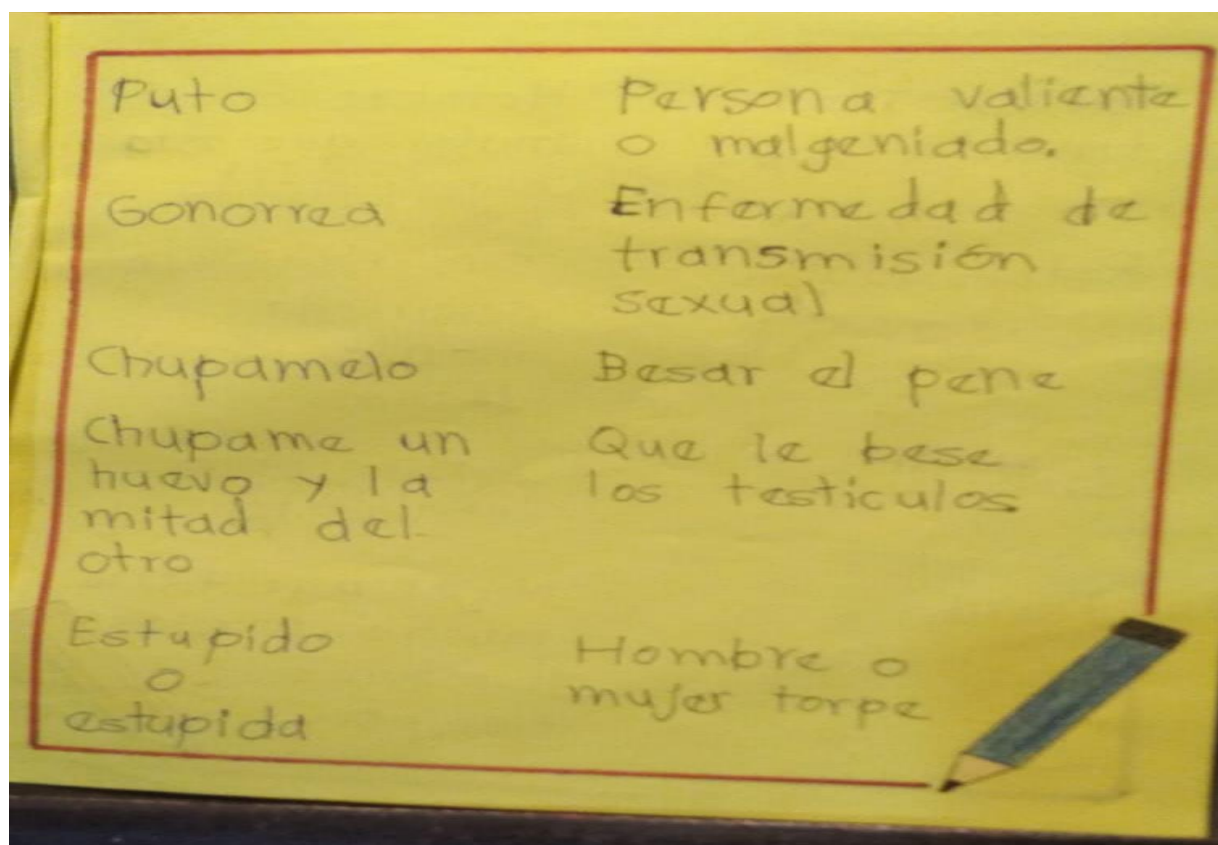 Puto
Persona valiente
o malgeniado.
Gonorrea
Enfermedad de
transmisión
sexual
Chupamelo
Besar el pene
Chupame un
huevo y la
mitad del
otro
Que le bese
los testiculos
Estupido
o
estupida
Hombre o
mujer torpe